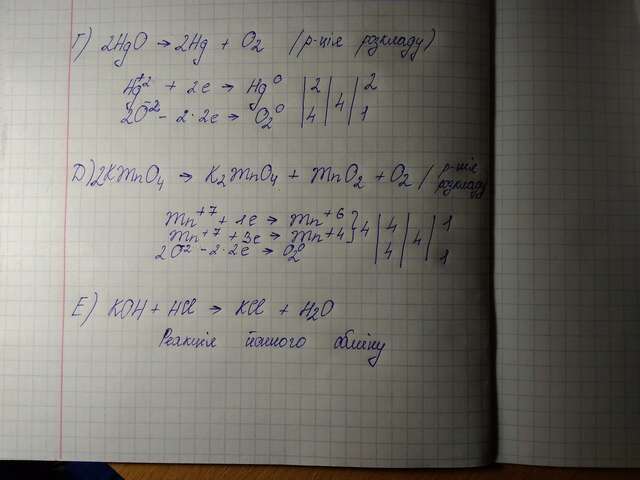 Г) 2HgO → 2Hg + O₂ (р-ція розкладу)
Hg⁺² + 2e → Hg⁰ | 2 | 4 | 2
2O⁻² - 2·2e → O₂⁰ | 4 | | 1
Д) 2KMnO₄ → K₂MnO₄ + MnO₂ + O₂ (р-ція розкладу
Mn⁺⁷ + 1e → Mn⁺⁶ } 4 | 4 | 4 | 1
Mn⁺⁷ + 3e → Mn⁺⁴
2O⁻² - 2·2e → O₂⁰ | 4 | | 1
Е) KOH + HCl → KCl + H₂O
Реакція йонного обміну